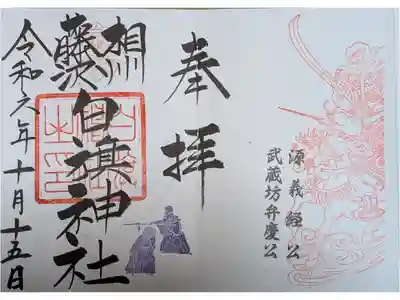 源義経公
武蔵坊弁慶公
奉拝
相州
藤沢白旗神社
令和六年十月十五日